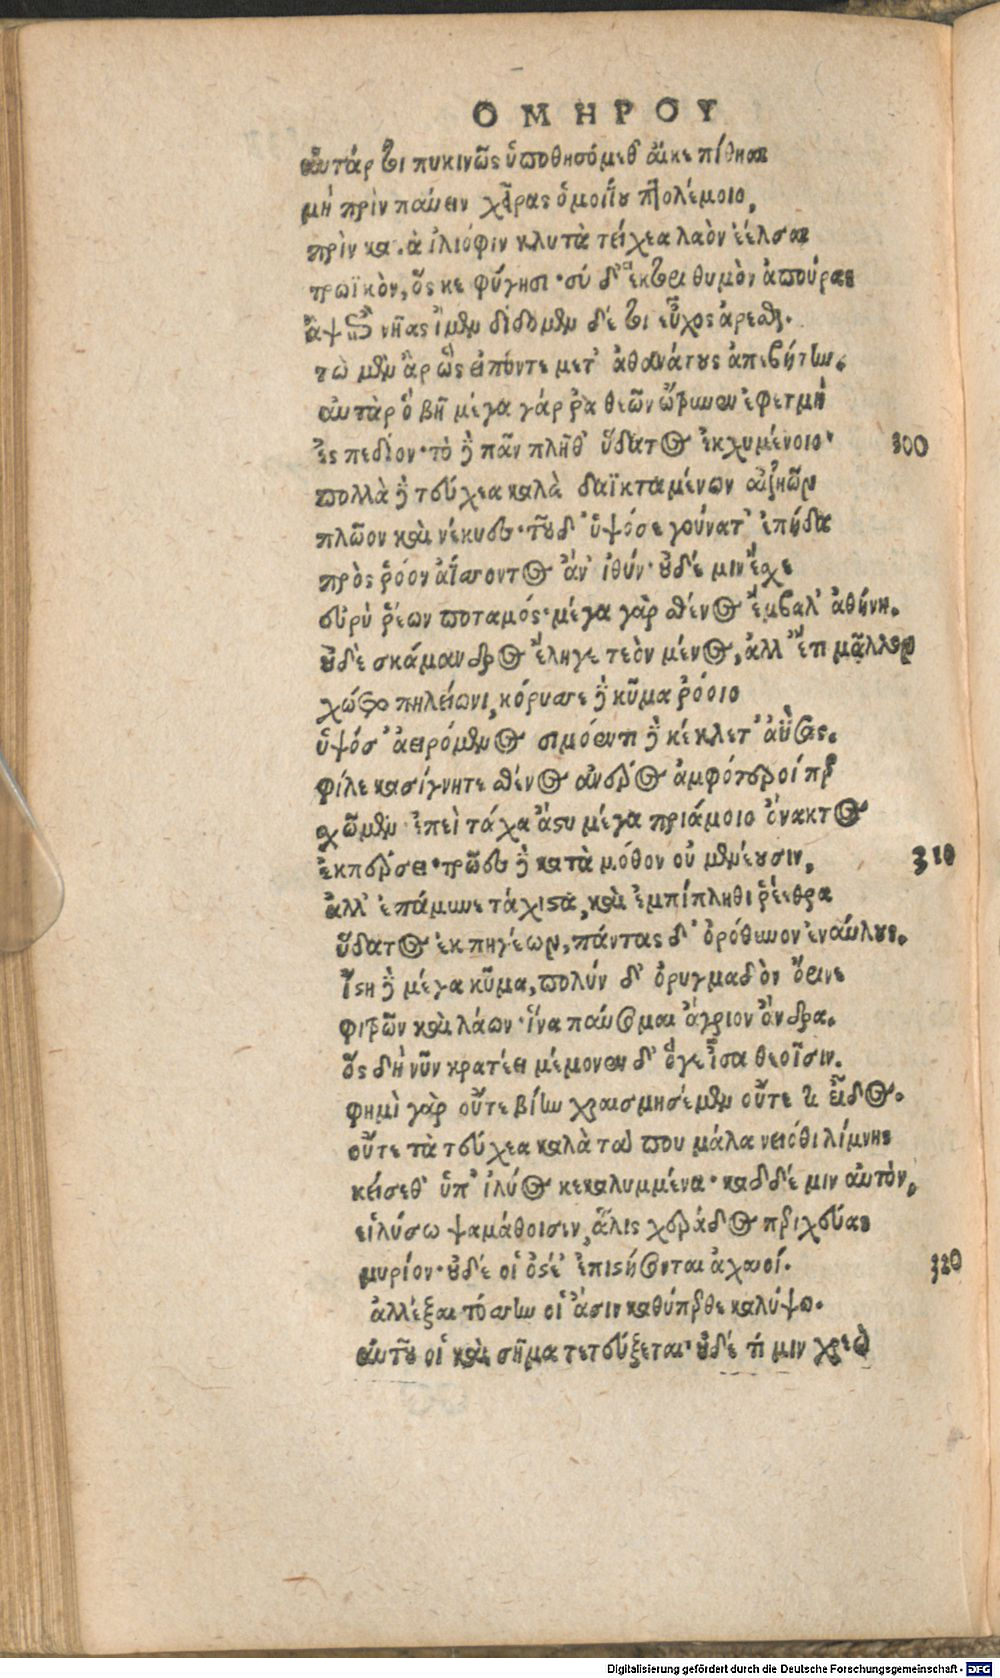 ΟΜΗΡΟΥ
αὐτάρ τοι πυκινῶς ὑποθησόμεθ' αἴκε πίθηαι
μὴ πρὶν παύειν χεῖρας ὁμοιΐου πτολέμοιο,
πρὶν κατὰ ἰλιόφιν κλυτὰ τείχεα λαὸν ἐέλσαι
τρωϊκὸν, ὅς κε φύγησι· σύ δ' ἕκτορι θυμὸν ἀπούρας
ἂψ ἐπὶ νῆας ἴμεν· δίδομεν δέ τοι εὖχος ἀρέσθαι.
τὼ μὲν ἂρ ὣς εἰπόντε μετ' ἀθανάτους ἀπεβήτην.
αὐτὰρ ὁ βῆ μέγα γάρ ῥα θεῶν ὤτρυνεν ἐφετμὴ
ἐς πεδίον· τὸ δὲ πᾶν πλῆθ' ὕδατος ἐκχυμένοιο· 300
πολλὰ δὲ τεύχεα καλὰ δαϊκταμένων αἰζηῶν
πλῶον καὶ νέκυες· τοῦ δ' ὑψόσε γούνατ' ἐπήδα
πρὸς ῥόον ἀΐσσοντος ἀν' ἰθύν· οὐδέ μιν ἔσχε
εὐρὺ ῥέων ποταμός· μέγα γὰρ σθένος ἔμβαλ' ἀθήνη.
οὐδὲ σκάμανδρος ἔληγε τεὸν μένος, ἀλλ' ἔτι μᾶλλον
χώετο πηλείωνι, κόρυσσε δὲ κῦμα ῥόοιο
ὑψόσ' ἀειρόμενος σιμόεντι δὲ κέκλετ' ἀΰσας.
φίλε κασίγνητε σθένος ἀνέρος ἀμφότεροί περ
σχῶμεν· ἐπεὶ τάχα ἄστυ μέγα πριάμοιο ἄνακτος
ἐκπέρσει· τρῶες δὲ κατὰ μόθον οὐ μενέουσιν, 310
ἀλλ' ἐπάμυνε τάχιστα, καὶ ἐμπίπληθι ῥέεθρα
ὕδατος ἐκ πηγέων, πάντας δ' ὀρόθυνον ἐναύλους.
ἵστη δὲ μέγα κῦμα, πολύν δ' ὀρυγμαδὸν ὄρινε
φιτρῶν καὶ λάων· ἵνα παύσομαι ἄγριον ἄνδρα.
ὃς δὴ νῦν κρατέει μέμονεν δ' ὅγε ἶσα θεοῖσιν.
φημὶ γὰρ οὔτε βίην χραισμησέμεν οὔτε τι εἶδος.
οὔτε τὰ τεύχεα καλὰ τά που μάλα νειόθι λίμνης
κείσεθ' ὑπ' ἰλύος κεκαλυμμένα· καδδέ μιν αὐτὸν,
εἱλύσω ψαμάθοισιν, ἅλις χεράδος περιχεύας
μυρίον· οὐδέ οἱ ὀστέ' ἐπιστήσονται ἀχαιοί. 320
ἀλλέξαι τόσσην οἱ ἄσιν καθύπερθε καλύψω.
αὐτοῦ οἱ καὶ σῆμα τετεύξεται· οὐδέ τί μιν χρεὼ
Digitalisierung gefördert durch die Deutsche Forschungsgemeinschaft - DFG